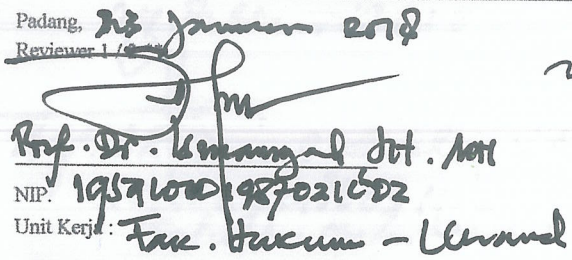 Padang, 23 Januari 2018
Reviewer 1 /
Prof. Dr. Ismansyah SH. MH
NIP. 195910001987021002
Unit Kerja : Fak. Hukum - Unand